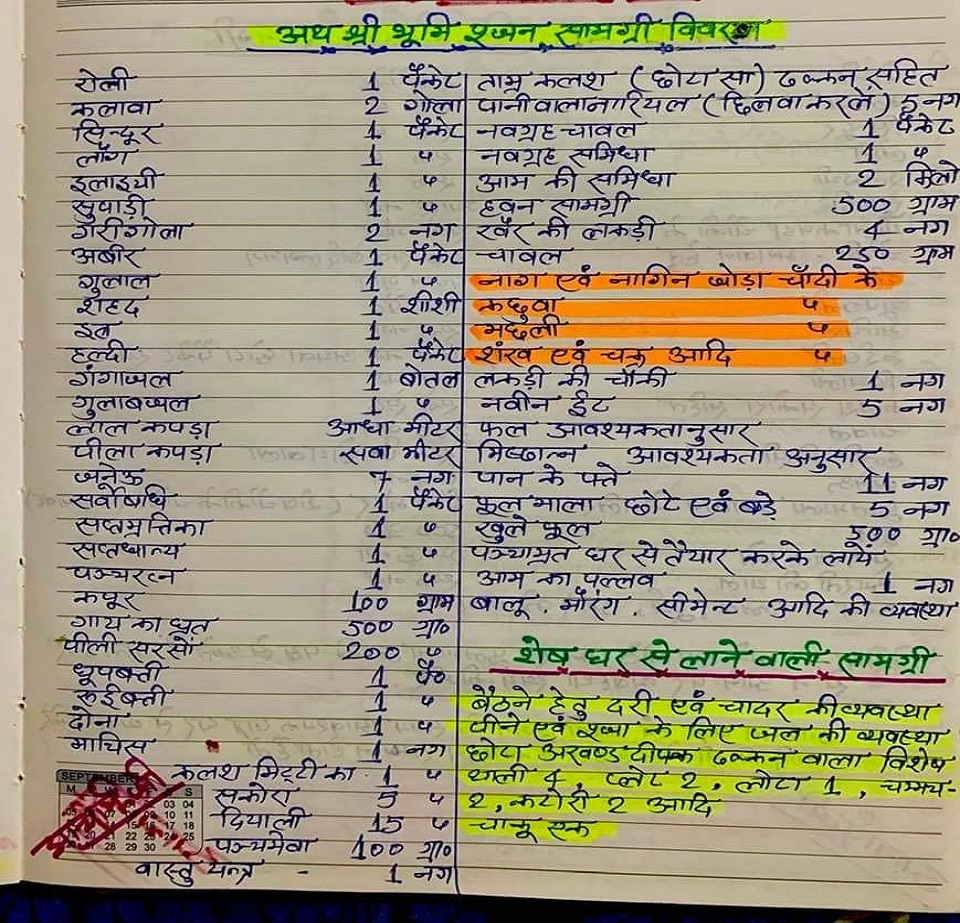 अथ श्री भूमि पूजन सामग्री विवरण
रोली 1 पैकेट
कलावा 2 गोला
सिन्दूर 1 पैकेट
लौंग 1 "
इलाइची 1 "
सुपाड़ी 1 "
गरीगोला 2 नग
अबीर 1 पैकेट
गुलाल 1 "
शहद 1 शीशी
इत्र 1 "
हल्दी 1 पैकेट
गंगाजल 1 बोतल
गुलाबजल 1 "
लाल कपड़ा आधा मीटर
पीला कपड़ा सवा मीटर
जनेऊ 7 नग
सर्वोषधि 1 पैकेट
सप्तमृतिका 1 "
सप्तधान्य 1 "
पञ्चरत्न 1 "
कपूर 100 ग्राम
गाय का घृत 500 ग्रा०
पीली सरसों 200 "
धूपबत्ती 1 पै०
रूईबत्ती 1 "
दोना 1 "
माचिस 1 नग
कलश मिट्टी का 1 "
सकोरा 5 "
दियाली 15 "
पञ्चमेवा 100 ग्रा०
वास्तु यन्त्र - 1 नग
ताम्र कलश (छोटा सा) ढक्कन सहित
पानी वाला नारियल (छिलवा कर लें) 5 नग
नवग्रह चावल 1 पैकेट
नवग्रह समिधा 1 "
आम की समिधा 2 किलो
हवन सामग्री 500 ग्राम
खैर की लकड़ी 4 नग
चावल 250 ग्राम
नाग एवं नागिन जोड़ा चाँदी के
कछुवा "
मछली "
शंख एवं चक्र आदि "
लकड़ी की चौकी 1 नग
नवीन ईट 5 नग
फल आवश्यकतानुसार
मिष्ठान्न आवश्यकता अनुसार
पान के पत्ते 11 नग
फूल माला छोटे एवं बड़े 5 नग
खुले फूल 500 ग्रा०
पञ्चामृत घर से तैयार करके लायें
आम का पल्लव 1 नग
बालू मौरंग. सीमेन्ट आदि की व्यवस्था
शेष घर से लाने वाली सामग्री
बैठने हेतु दरी एवं चादर की व्यवस्था
पीने एवं पूजा के लिए जल की व्यवस्था
छोटा अखण्ड दीपक ढक्कन वाला विशेष
थाली 4, प्लेट 2, लोटा 1, चम्मच-
2, कटोरी 2 आदि
चाकू एक
SEPTEMBER